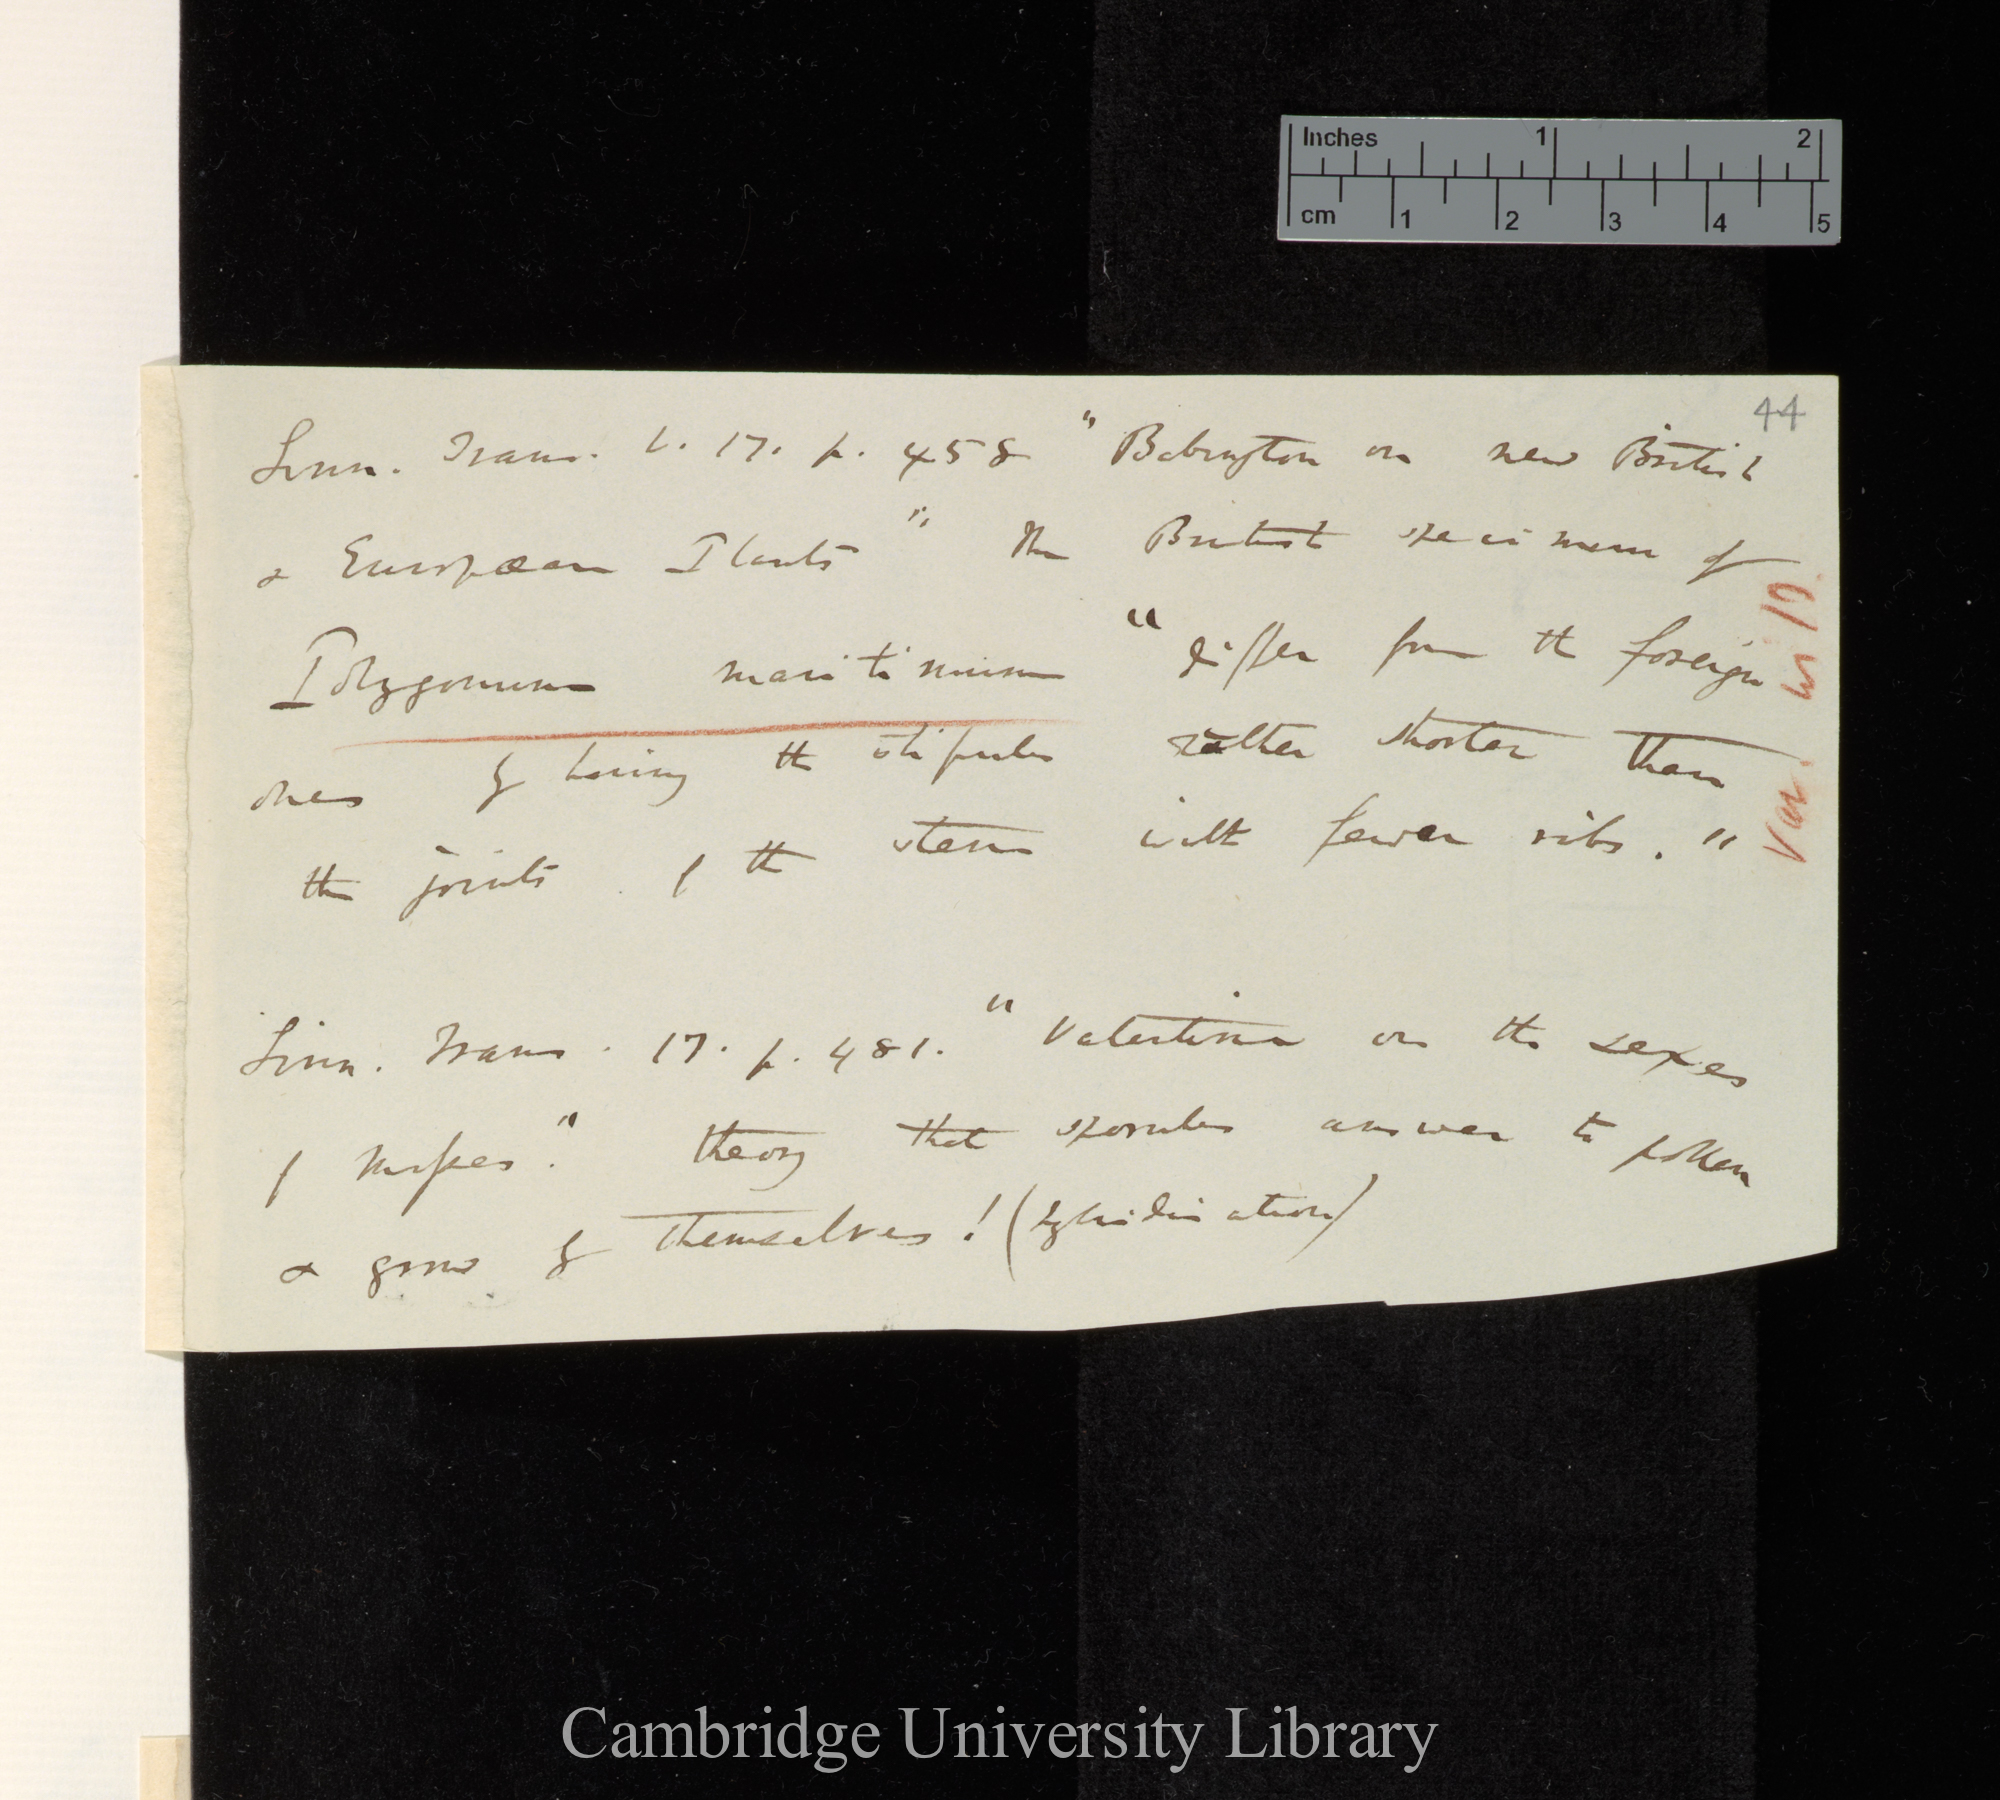 Inches 1 2
cm 1 2 3 4 5
44
Linn. Trans. V. 17. p. 458 "Babington on new British
& European Plants" The British specimens of
Polygonum maritimum "differ from the foreign
ones by having the stipules rather shorter than
the joints of the stem with fewer ribs."
Linn. Trans. 17. p. 481. "Valentine on the sexes
of Mosses." theory that sporules answer to pollen
& grow by themselves! (hybridisation)
Var. in
Cambridge University Library